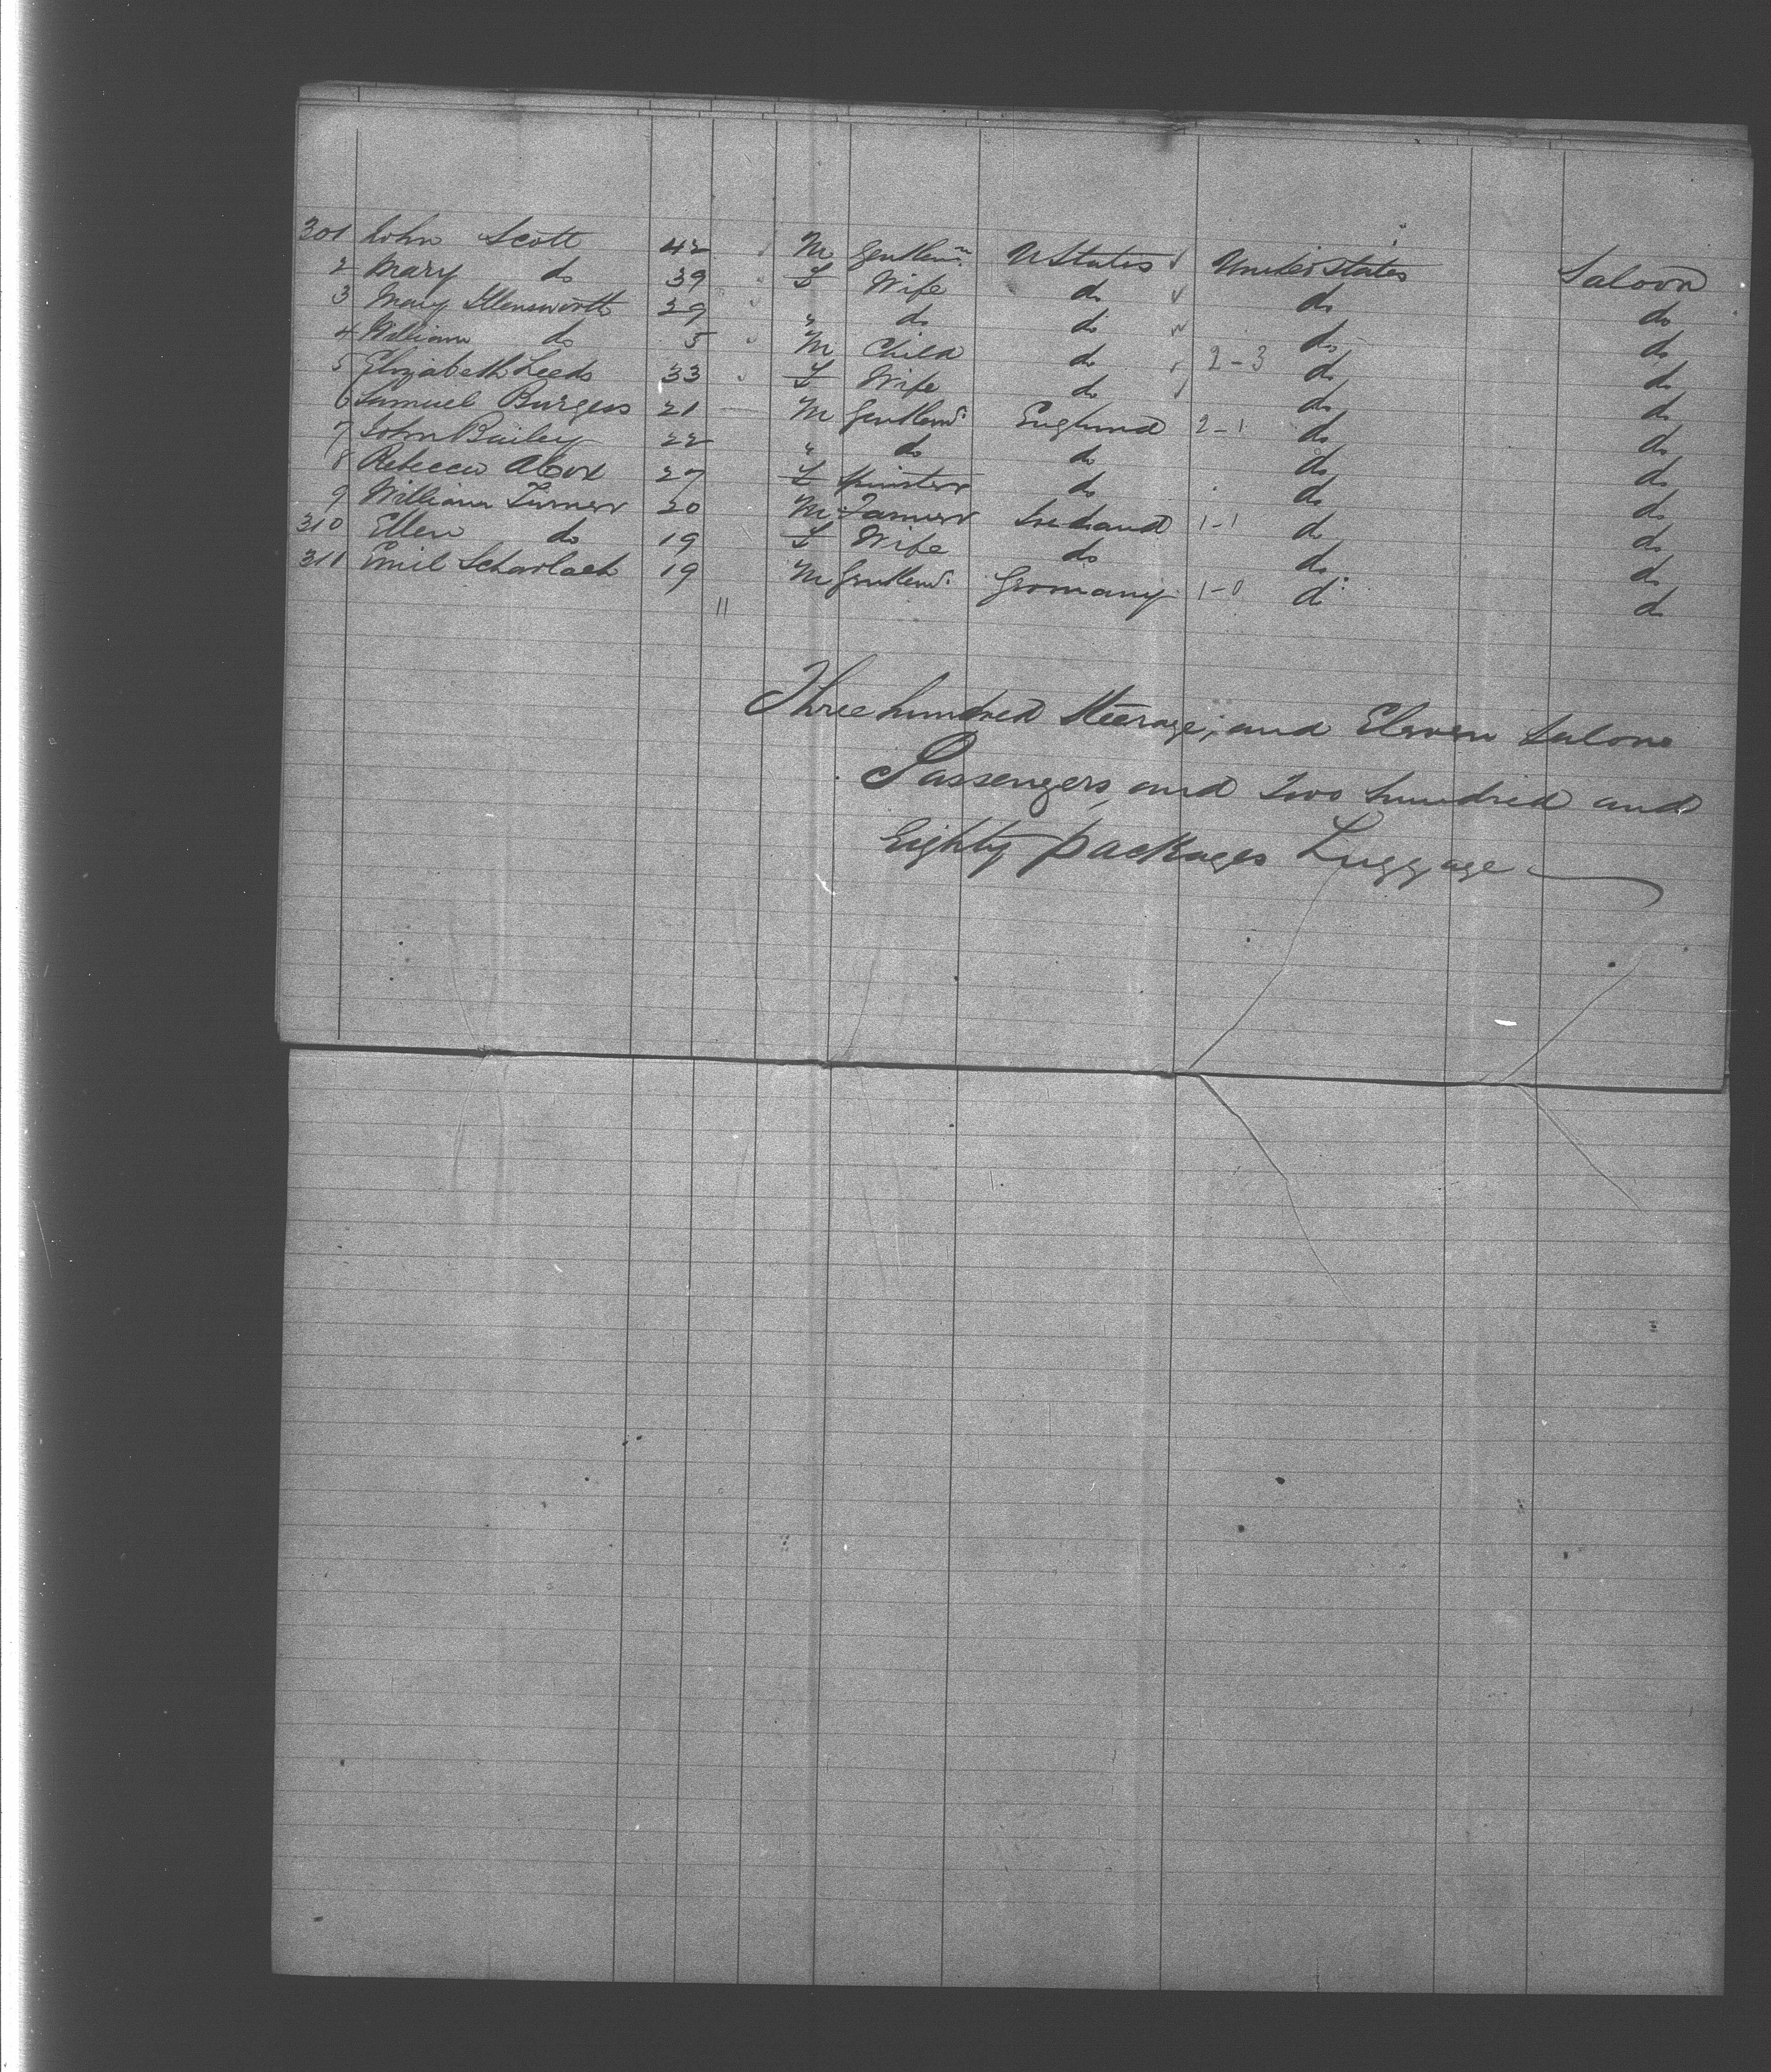 301 John Scott 42 M Gentlemn. U States Unitedstates Saloon
2 Mary do 39 F Wife do do do
3 Mary Illensworth 29 " do do do do
4 William do 5 M Child do 2-3 do do
5 Elizabeth Leeds 33 F Wife do do do
6 Samuel Burgess 21 M Gentlemn. England 2-1 do do
7 John Bailey 22 " do do do do
8 Rebecca 27 F Spinster do do do
9 William Turner 20 M Farmer Ireland 1-1 do do
310 Ellen do 19 F Wife do do do
311 Emil Scharlach 19 M Gentlemn. Germany 1-0 do do
11
Three hundred Steerage, and Eleven Saloon
Passengers, and Two hundred and
Eighty packages Luggage